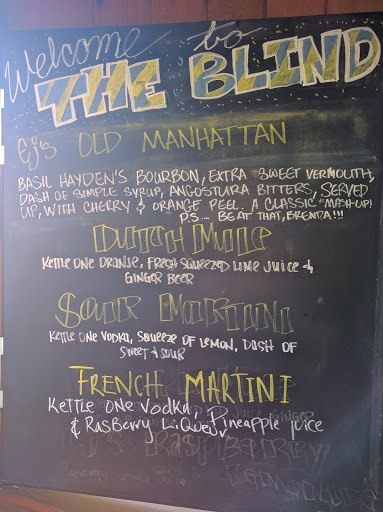 Welcome to
THE BLIND
EJ's OLD MANHATTAN
BASIL HAYDEN'S BOURBON, EXTRA SWEET VERMOUTH,
DASH OF SIMPLE SYRUP, ANGOSTURA BITTERS, SERVED
UP, WITH CHERRY & ORANGE PEEL. A CLASSIC MASH-UP!
P.S.... BEAT THAT, BRENDA!!!
DUTCH MULE
KETTLE ONE ORANJE, FRESH SQUEEZED LIME JUICE &
GINGER BEER
SOUR MARTINI
KETTLE ONE VODKA, SQUEEZE OF LEMON, DASH OF
SWEET & SOUR
FRENCH MARTINI
KETTLE ONE VODKA, Pineapple juice
& RASBERRY LIQUEUR